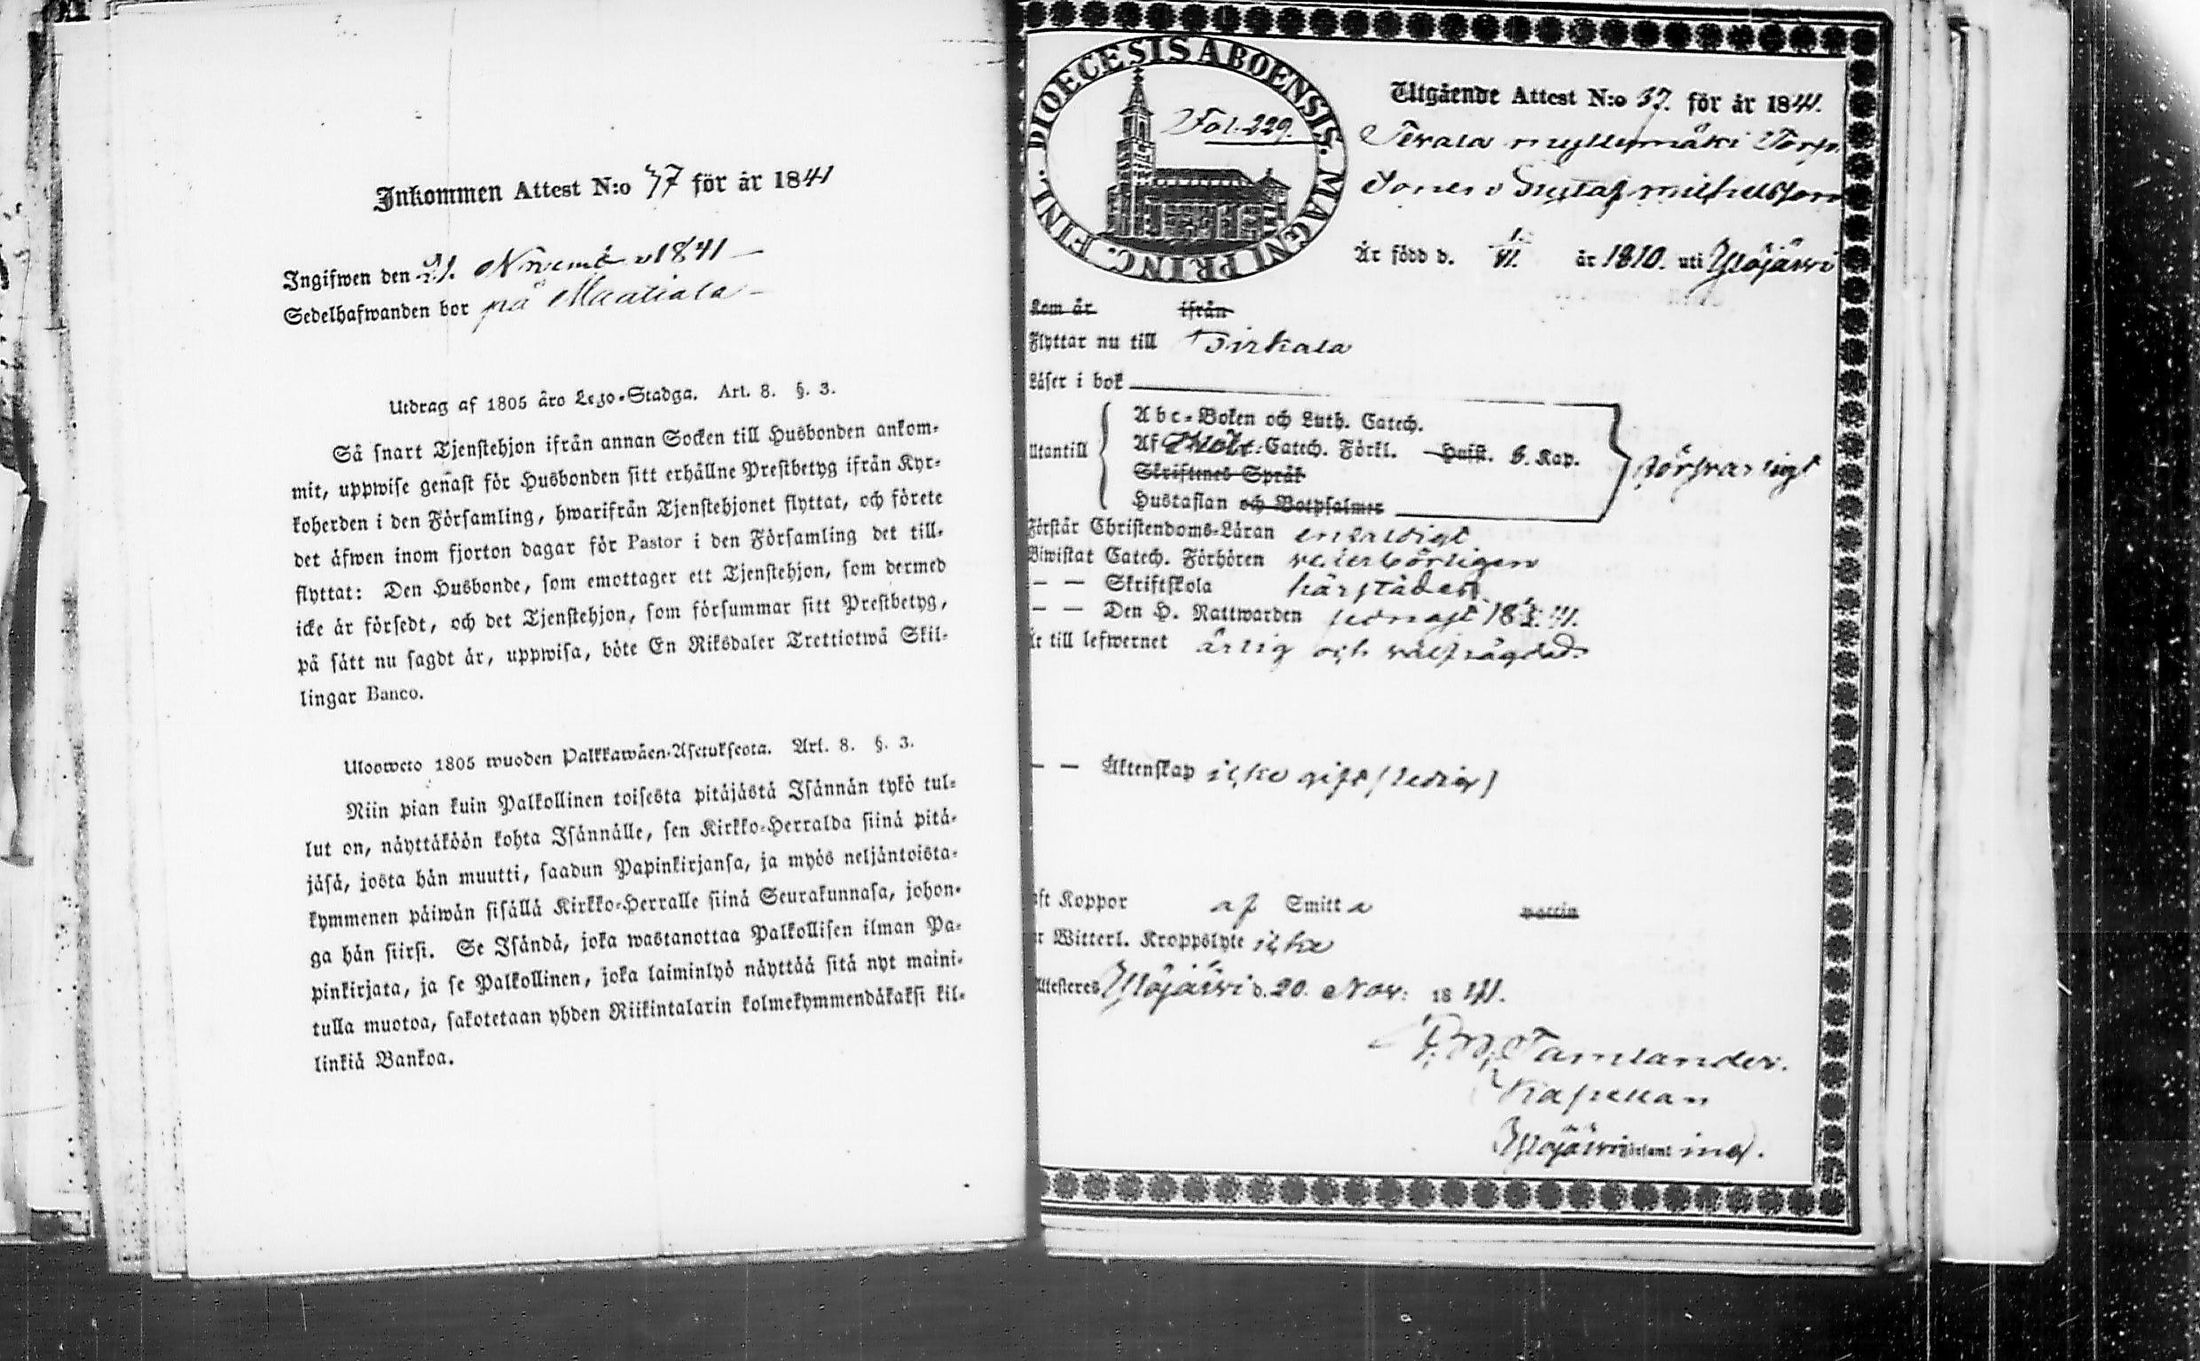 Inkommen Attest N:o 77 för år 1841
Ingifwen den 21. Novemb 1841
Sedelhafwanden bor på
Utdrag af 1805 åro Lego-Stadga. Art. 8. §. 3.
Så snart Tjenstehjon ifrån annan Socken till Husbonden ankom-
mit, uppwise genast för Husbonden sitt erhållne Prestbetyg ifrån Kyr-
koherden i den Församling, hwarifrån Tjenstehjonet flyttat, och förete
det äfwen inom fjorton dagar för Pastor i den Församling det till-
flyttat: Den Husbonde, som emottager ett Tjenstehjon, som dermed
icke är försedt, och det Tjenstehjon, som försummar sitt Prestbetyg,
på sätt nu sagdt är, uppwisa, böte En Riksdaler Trettiotwå Skil-
lingar Banco.
Ulosweto 1805 wuoden Palkkawäen-Asetuksesta. Art. 8. §. 3.
Niin pian kuin Palkollinen toisesta pitäjästä Isännän tykö tul-
lut on, näyttäköön kohta Isännälle, sen Kirkko-Herralda siinä pitä-
jäsä, josta hän muutti, saadun Papinkirjansa, ja myös neljäntoista-
kymmenen päiwän sisällä Kirkko-Herralle siinä Seurakunnasa, johon-
ga hän siirsi. Se Isändä, joka wastanottaa Palkollisen ilman Pa-
pinkirjata, ja se Palkollinen, joka laiminlyö näyttää sitä nyt maini-
tulla muotoa, sakotetaan yhden Riikintalarin kolmekymmendäkaksi kil-
linkiä Bankoa.
DIOECESIS ABOENSIS. MAGNI PRINC. FINL.
Fol. 229.
Utgående Attest N:o 37. för år 1841.
myllymäki Torp.
Sonen Gustaf Michelsson
Är född d. 1. VI. år 1810. uti Ylöjärvi
Kom år ifrån
Flyttar nu till Birkala
Läser i bok
Utantill
Abc-Boken och Luth. Catech.
Af Catech. Förkl. Husf. 6. Kap.
Skriftenes Språk
Hustaflan och Botpsalmer
försvarligt
Förstår Christendoms-Läran enfaldigt
Biwistat Catech. Förhören vederbörligen
— — Skriftskola härstädes
— — Den H. Nattwarden senast
Är till lefwernet ärlig och välfrägdad
— — Äktenskap icke gift (ledig)
Koppor af Smitta
Witterl. Kroppslyte icke
Attesteres Ylöjärvi d. 20. Nov: 1841.
Tamlander.
Kapellan
Ylöjärvi